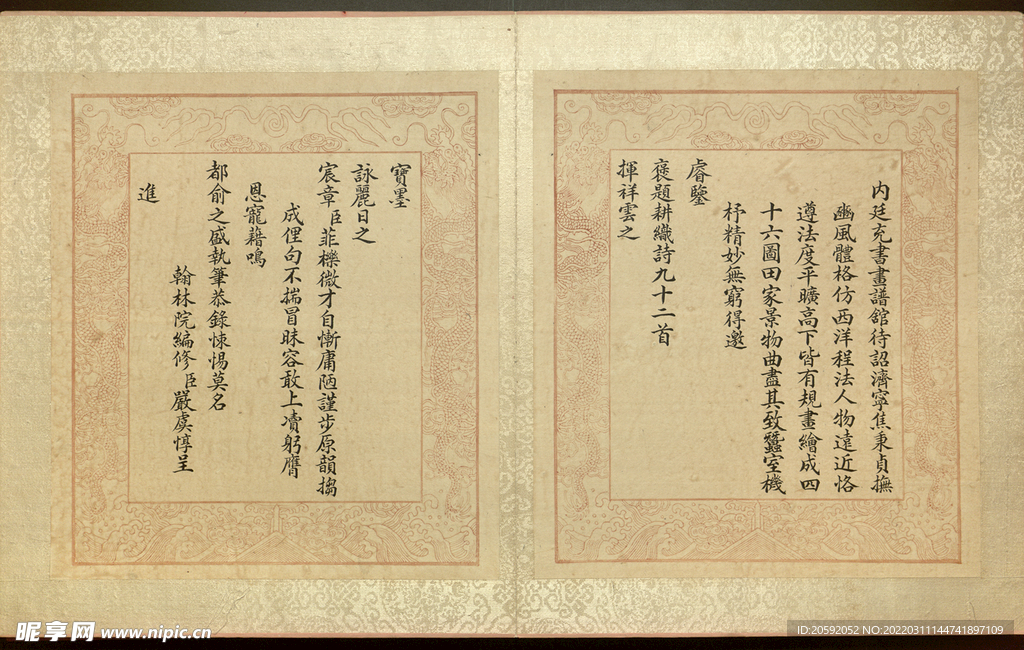 內廷充書畫譜館待詔濟寧焦秉貞撫
豳風體格仿西洋程法人物遠近恪
遵法度平曠高下皆有規畫繪成四
十六圖田家景物曲盡其致蠶室機
杼精妙無窮得邀
睿鑒
褒題耕織詩九十二首
揮祥雲之
寶墨
詠麗日之
宸章臣菲櫟微才自慚庸陋謹步原韻搊
成俚句不揣冒昧容敢上凟躬膺
恩寵藉鳴
都俞之盛執筆恭錄悚惕莫名
翰林院編修臣嚴虞惇呈
進
昵享网 www.nipic.cn
ID:20592052 NO:20220311144741897109